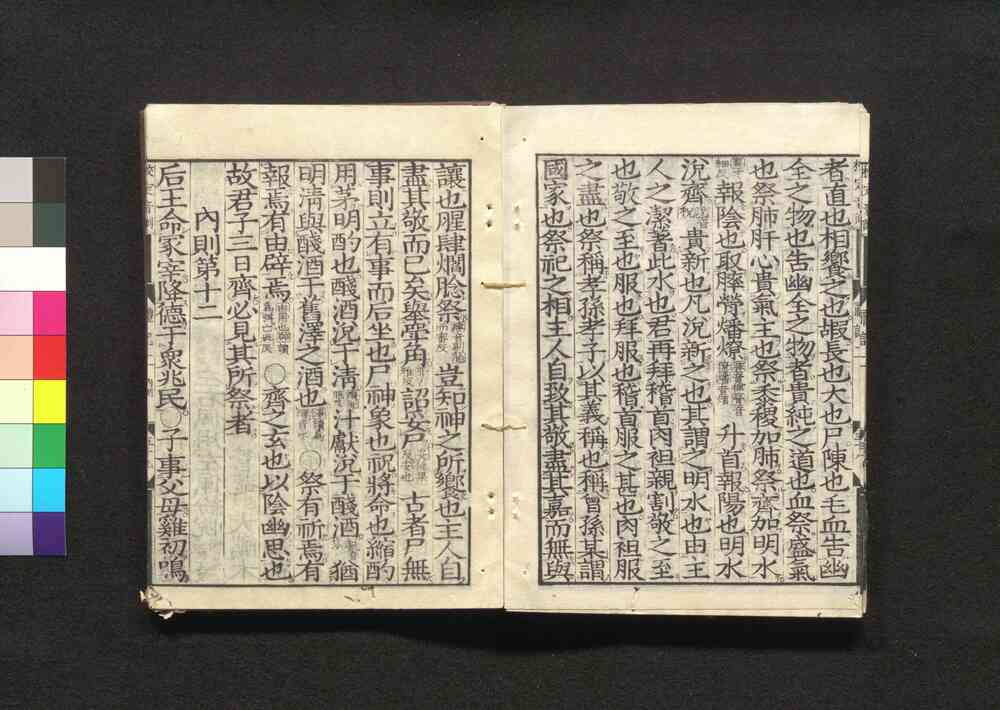 者直也相饗之也嘏長也大也尸陳也毛血告幽
全之物也告幽全之物者貴純之道也血祭盛氣
也祭肺肝心貴氣主也祭黍稷加肺祭齊加明水
報陰也取膟膋燔燎升首報陽也明水
涚齊貴新也凡涚新之也其謂之明水也由主
人之潔著此水也君再拜稽首肉袒親割敬之至
也敬之至也服也拜服也稽首服之甚也肉袒服
之盡也祭稱孝孫孝子以其義稱也稱曾孫某謂
國家也祭祀之相主人自致其敬盡其嘉而無與
讓也腥肆爓腍祭豈知神之所饗也主人自
盡其敬而已矣舉斝角詔妥尸古者尸無
事則立有事而后坐也尸神象也祝將命也縮酌
用茅明酌也醆酒涚于清汁獻涚于醆酒猶
明清與醆酒于舊澤之酒也○祭有祈焉有
報焉有由辟焉○齊之玄也以陰幽思也
故君子三日齊必見其所祭者
內則第十二
后王命冢宰降德于衆兆民○子事父母雞初鳴